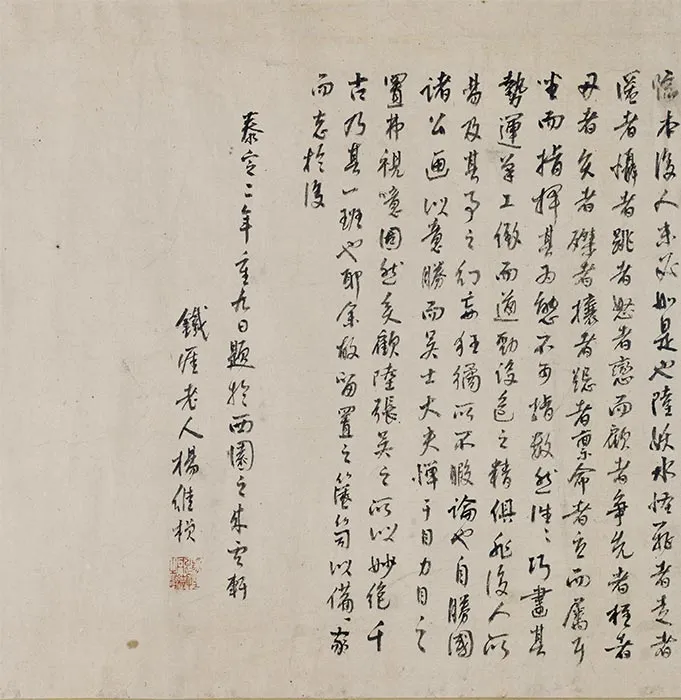 臨本後人未必如是也陸妖水怪飛者走者
者懾者跳者怒者戀而顧者爭先者者
者者磔者攘者踞者稟命者立而屬耳
坐而指揮其為態不可數然往〻巧畫其
勢運筆工緻而遒勁設色之精俱非後人所
易及其事之幻妄狂獝所不暇論也自勝國
諸公画以意勝而吳士大夫憚于目力目之
置弗視噫固然矣顧陸張吳之所以妙絶千
古乃其一班也耶余故留置之篋笥以備一家
而志於後
泰定二年重九日題於西園之来雲軒
鐵崖老人楊維楨